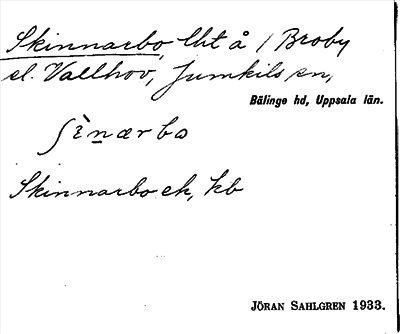 Skinnarbo, lht å 1 Broby
el. Vallhov, Jumkils sn,
Bälinge hd, Uppsala län.
ʃènærbo
Skinnarbo ek, kb
JÖRAN SAHLGREN 1933.